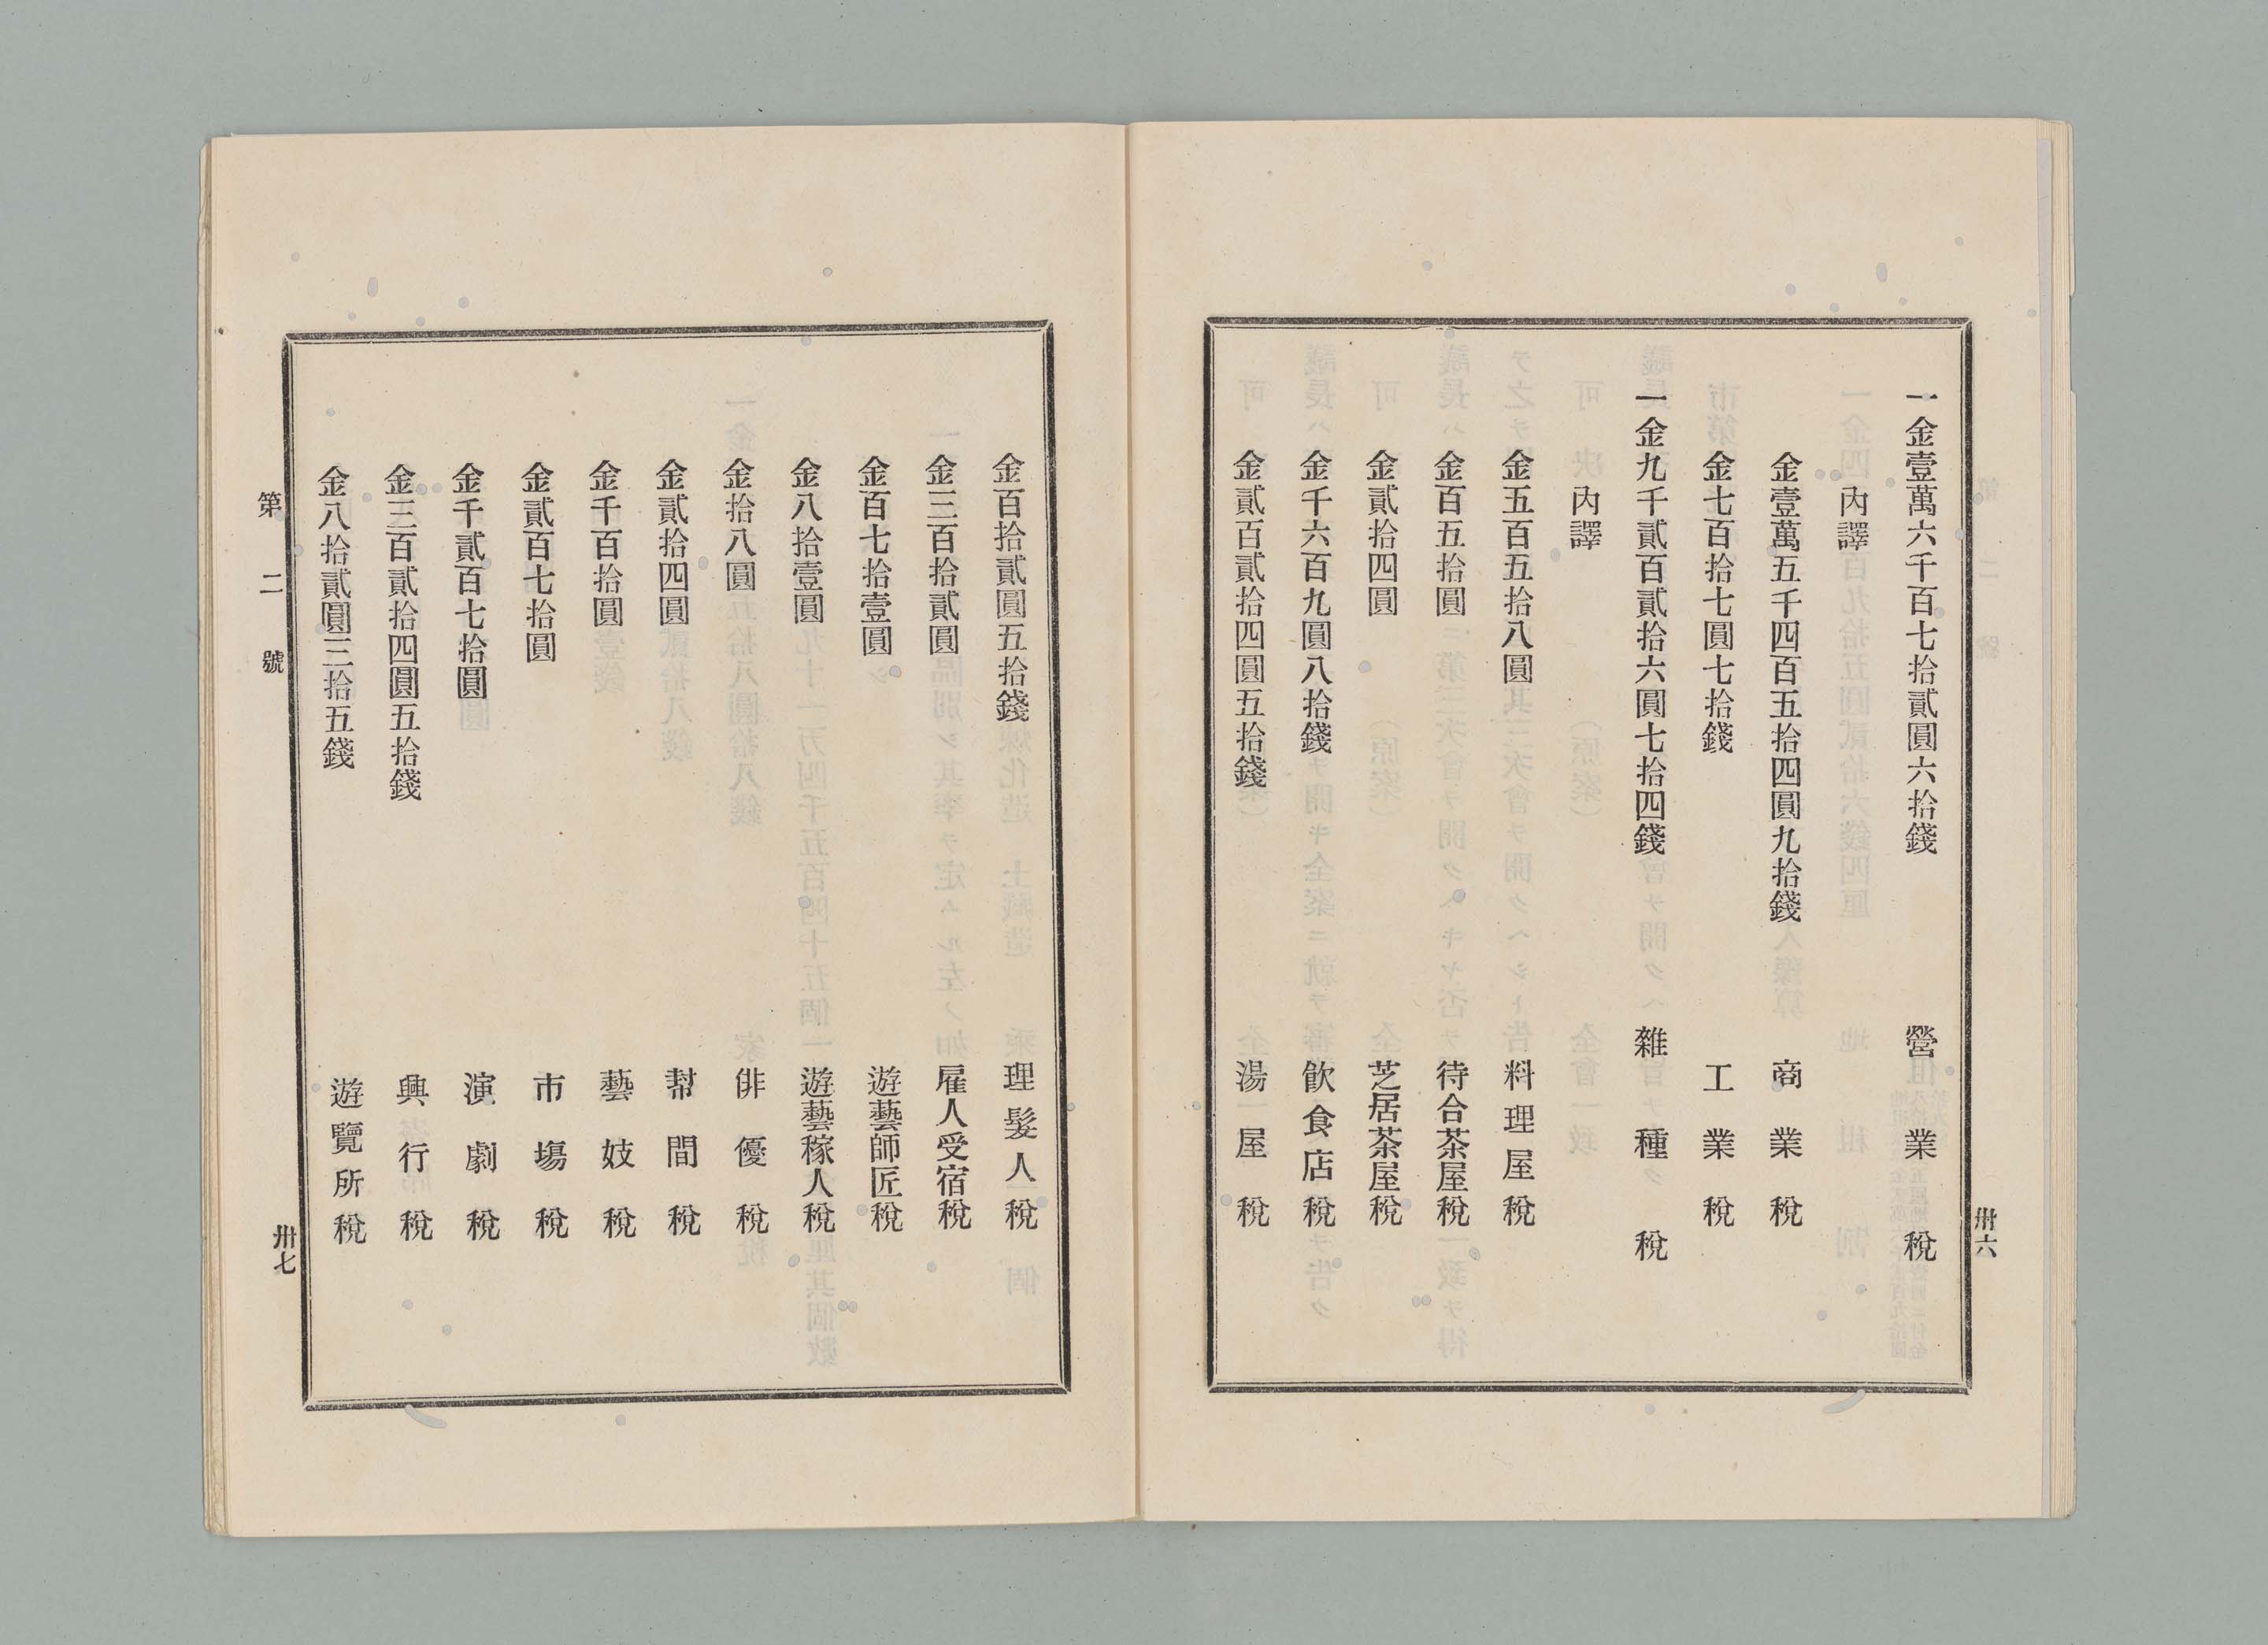 一金壹萬六千百七拾貳圓六拾錢 營業稅
內譯
金壹萬五千四百五拾四圓九拾錢 商業稅
金七百拾七圓七拾錢 工業稅
一金九千貳百貳拾六圓七拾四錢 雜種稅
內譯
金五百五拾八圓 料理屋稅
金百五拾圓 待合茶屋稅
金貳拾四圓 芝居茶屋稅
金千六百九圓八拾錢 飮食店稅
金貳百貳拾四圓五拾錢 湯屋稅
卅六
金百拾貳圓五拾錢 理髮人稅
金三百拾貳圓 雇人受宿稅
金百七拾壹圓 遊藝師匠稅
金八拾壹圓 遊藝稼人稅
金拾八圓 俳優稅
金貳拾四圓 幇間稅
金千百拾圓 藝妓稅
金貳百七拾圓 市場稅
金千貳百七拾圓 演劇稅
金三百貳拾四圓五拾錢 興行稅
金八拾貳圓三拾五錢 遊覽所稅
第二號
卅七